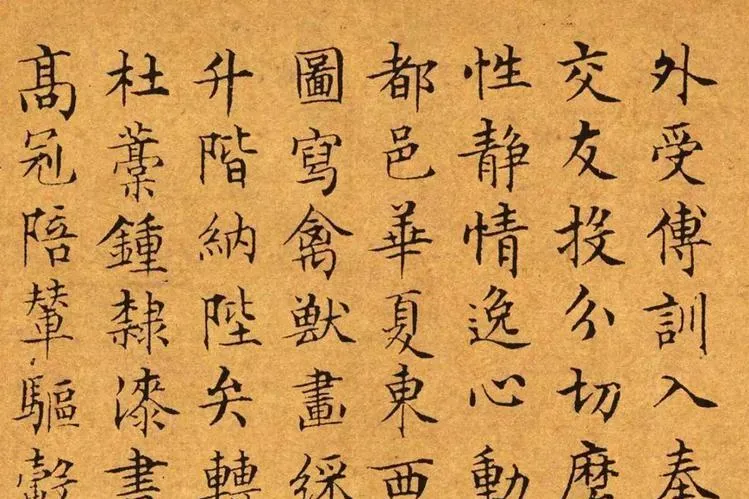 外受傅訓入奉
交友投分切磨
性静情逸心動
都邑華夏東西
圖寫禽獸畫綵
升階納陛矣轉
杜藁鍾隸漆書
髙冠陪輦驅轂